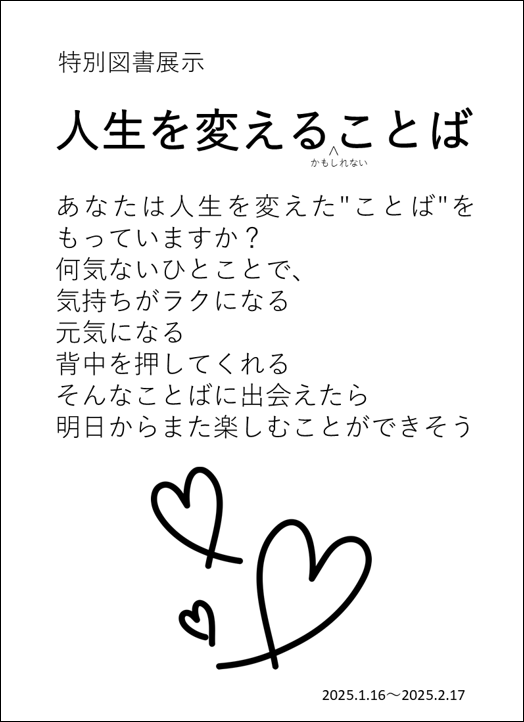 特別図書展示
人生を変えることば
^
かもしれない
あなたは人生を変えた"ことば"を
もっていますか？
何気ないひとことで、
気持ちがラクになる
元気になる
背中を押してくれる
そんなことばに出会えたら
明日からまた楽しむことができそう
2025.1.16～2025.2.17